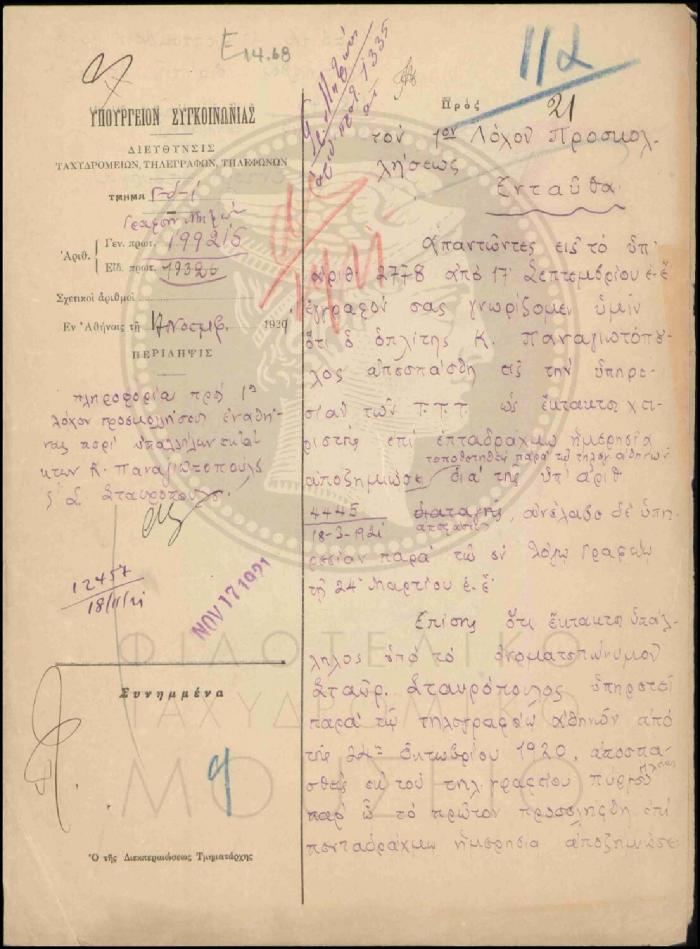 Ε 14.68
ΥΠΟΥΡΓΕΙΟΝ ΣΥΓΚΟΙΝΩΝΙΑΣ
ΔΙΕΥΘΥΝΣΙΣ
ΤΑΧΥΔΡΟΜΕΙΩΝ, ΤΗΛΕΓΡΑΦΩΝ, ΤΗΛΕΦΩΝΩΝ
ΤΜΗΜΑ
Ἀριθ.
Γεν. πρωτ. 19921/5
Εἰδ. πρωτ. 19326
Σχετικοὶ ἀριθμοὶ
Ἐν Ἀθήναις τῇ 17 Νοεμβ. 192
ΠΕΡΙΛΗΨΙΣ
πληροφορία πρὸς 1ον
λόχον προσκολλήσεως
περὶ ὑπαλλήλων
Κ. Παναγιωτοπούλου
Σ. Σταυροπούλου.
12457
18/11/21
NOV 17 1921
Συνημμένα
Ὁ τῆς Διεκπεραιώσεως Τμηματάρχης
1335
112
Πρὸς
21
τὸν 1ον Λόχον Προσκολ-
λήσεως
Ἐνταῦθα
Ἀπαντῶντες εἰς τὸ ὑπ'
ἀριθ. 2778 ἀπὸ 17 Σεπτεμβρίου ἐ.ἔ.
ἔγγραφόν σας γνωρίζομεν ὑμῖν
ὅτι ὁ ὁπλίτης Κ. Παναγιωτόπου-
λος ἀπεσπάσθη εἰς τὴν ὑπηρε-
σίαν τῶν Τ.Τ.Τ. ὡς ἔκτακτος χει-
ριστὴς ἐπὶ ἑπταδράχμῳ ἡμερησίᾳ
τοποθετηθεὶς παρὰ τῷ τηλ. Ἀθηνῶν
ἀποζημιώσει διὰ τῆς ὑπ' ἀριθ
4445
18-3-1921
διαταγῆς, ἀνέλαβε δὲ ὑπη-
ἀποφάσεως
ρεσίαν παρὰ τῷ ἐν λόγῳ Γραφείῳ
τῇ 24 Μαρτίου ἐ.ἔ.
Ἐπίσης ὅτι ἔκτακτος ὑπάλ-
ληλος ὑπὸ τὸ ὀνοματεπώνυμον
Σταῦρ. Σταυρόπουλος ὑπηρετεῖ
παρὰ τῷ τηλεγραφείῳ Ἀθηνῶν ἀπὸ
τῆς 24ης Ὀκτωβρίου 1920, ἀποσπα-
σθεὶς ἐκ τοῦ τηλ. γραφείου Πύργου
Ἠλείας
παρ' ᾧ τὸ πρῶτον προσελήφθη ἐπὶ
πενταδράχμῳ ἡμερησίᾳ ἀποζημιώσει
ΦΙΛΟΤΕΛΙΚΟ
ΤΑΧΥΔΡΟΜΙΚΟ
ΜΟΥΣΕΙΟ